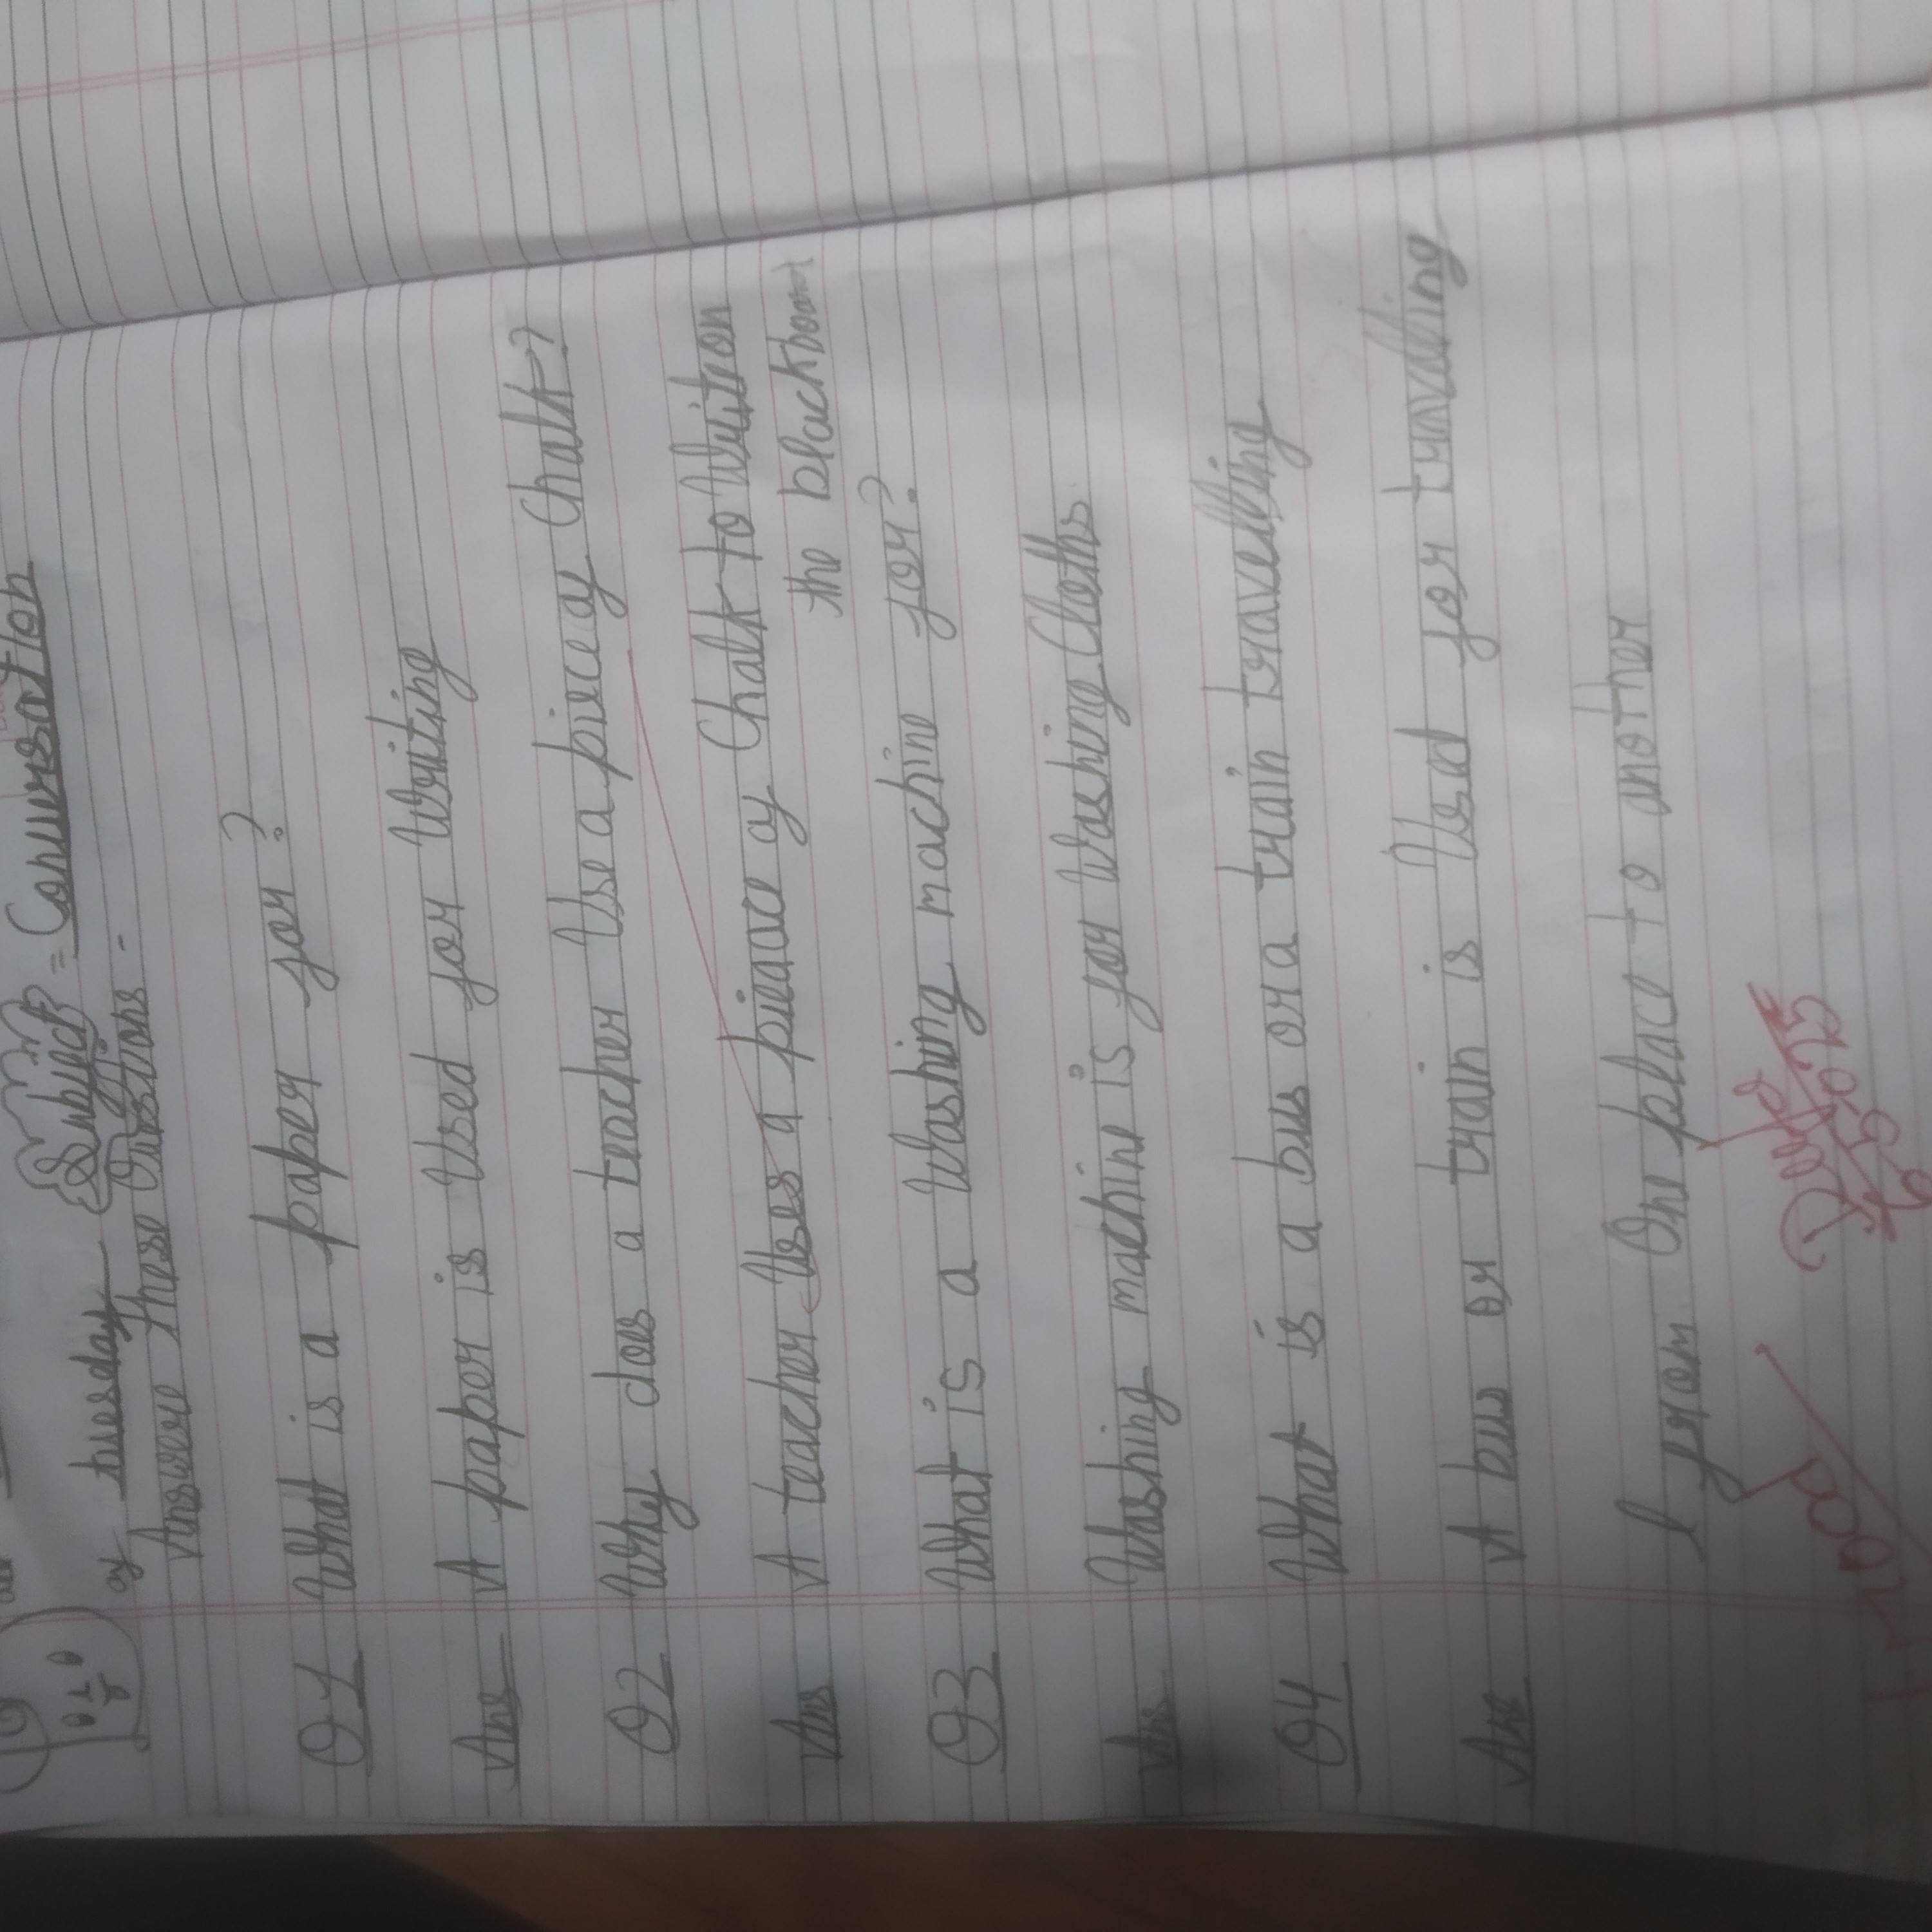 tuesday Subject = Conversation
Answere these Questions -
Q1 What is a paper for ?
Ans A paper is Used for Writing
Q2 Why does a teacher Use a piece of Chalk?
Ans A teacher Uses a pieace of Chalk to Write on
the blackboard
Q3 What is a Washing machine for?
Ans Washing machine is for Washing Cloths
Q4 What is a bus or a train travelling
Ans A bus or train is Used for travelling
from One place to another
6/5/2025